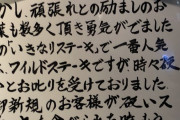 かし、頑張れとの励ましのお
葉も数多く頂き勇気がでました
のいきなりステーキ」で一番人気
ス、ワイルドステーキですが時々硬
とお叱りを受けておりました
新規のお客様が硬いス